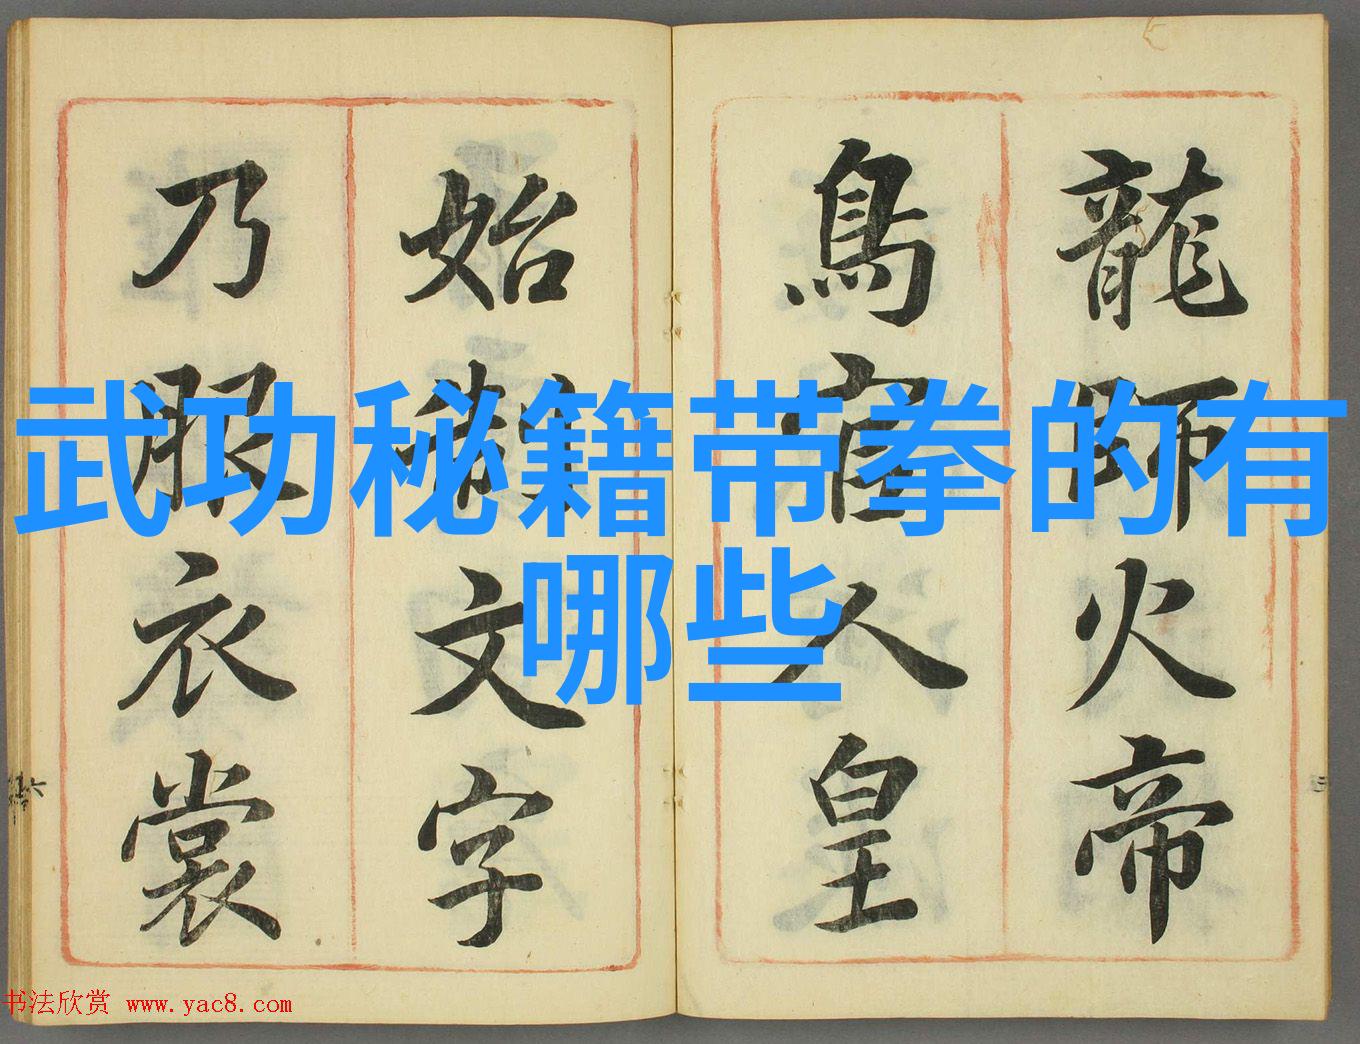 武功秘籍带拳的有
哪些
龍師火帝
鳥官人皇
始制文字
乃服衣裳
书法欣赏 www.yac8.com